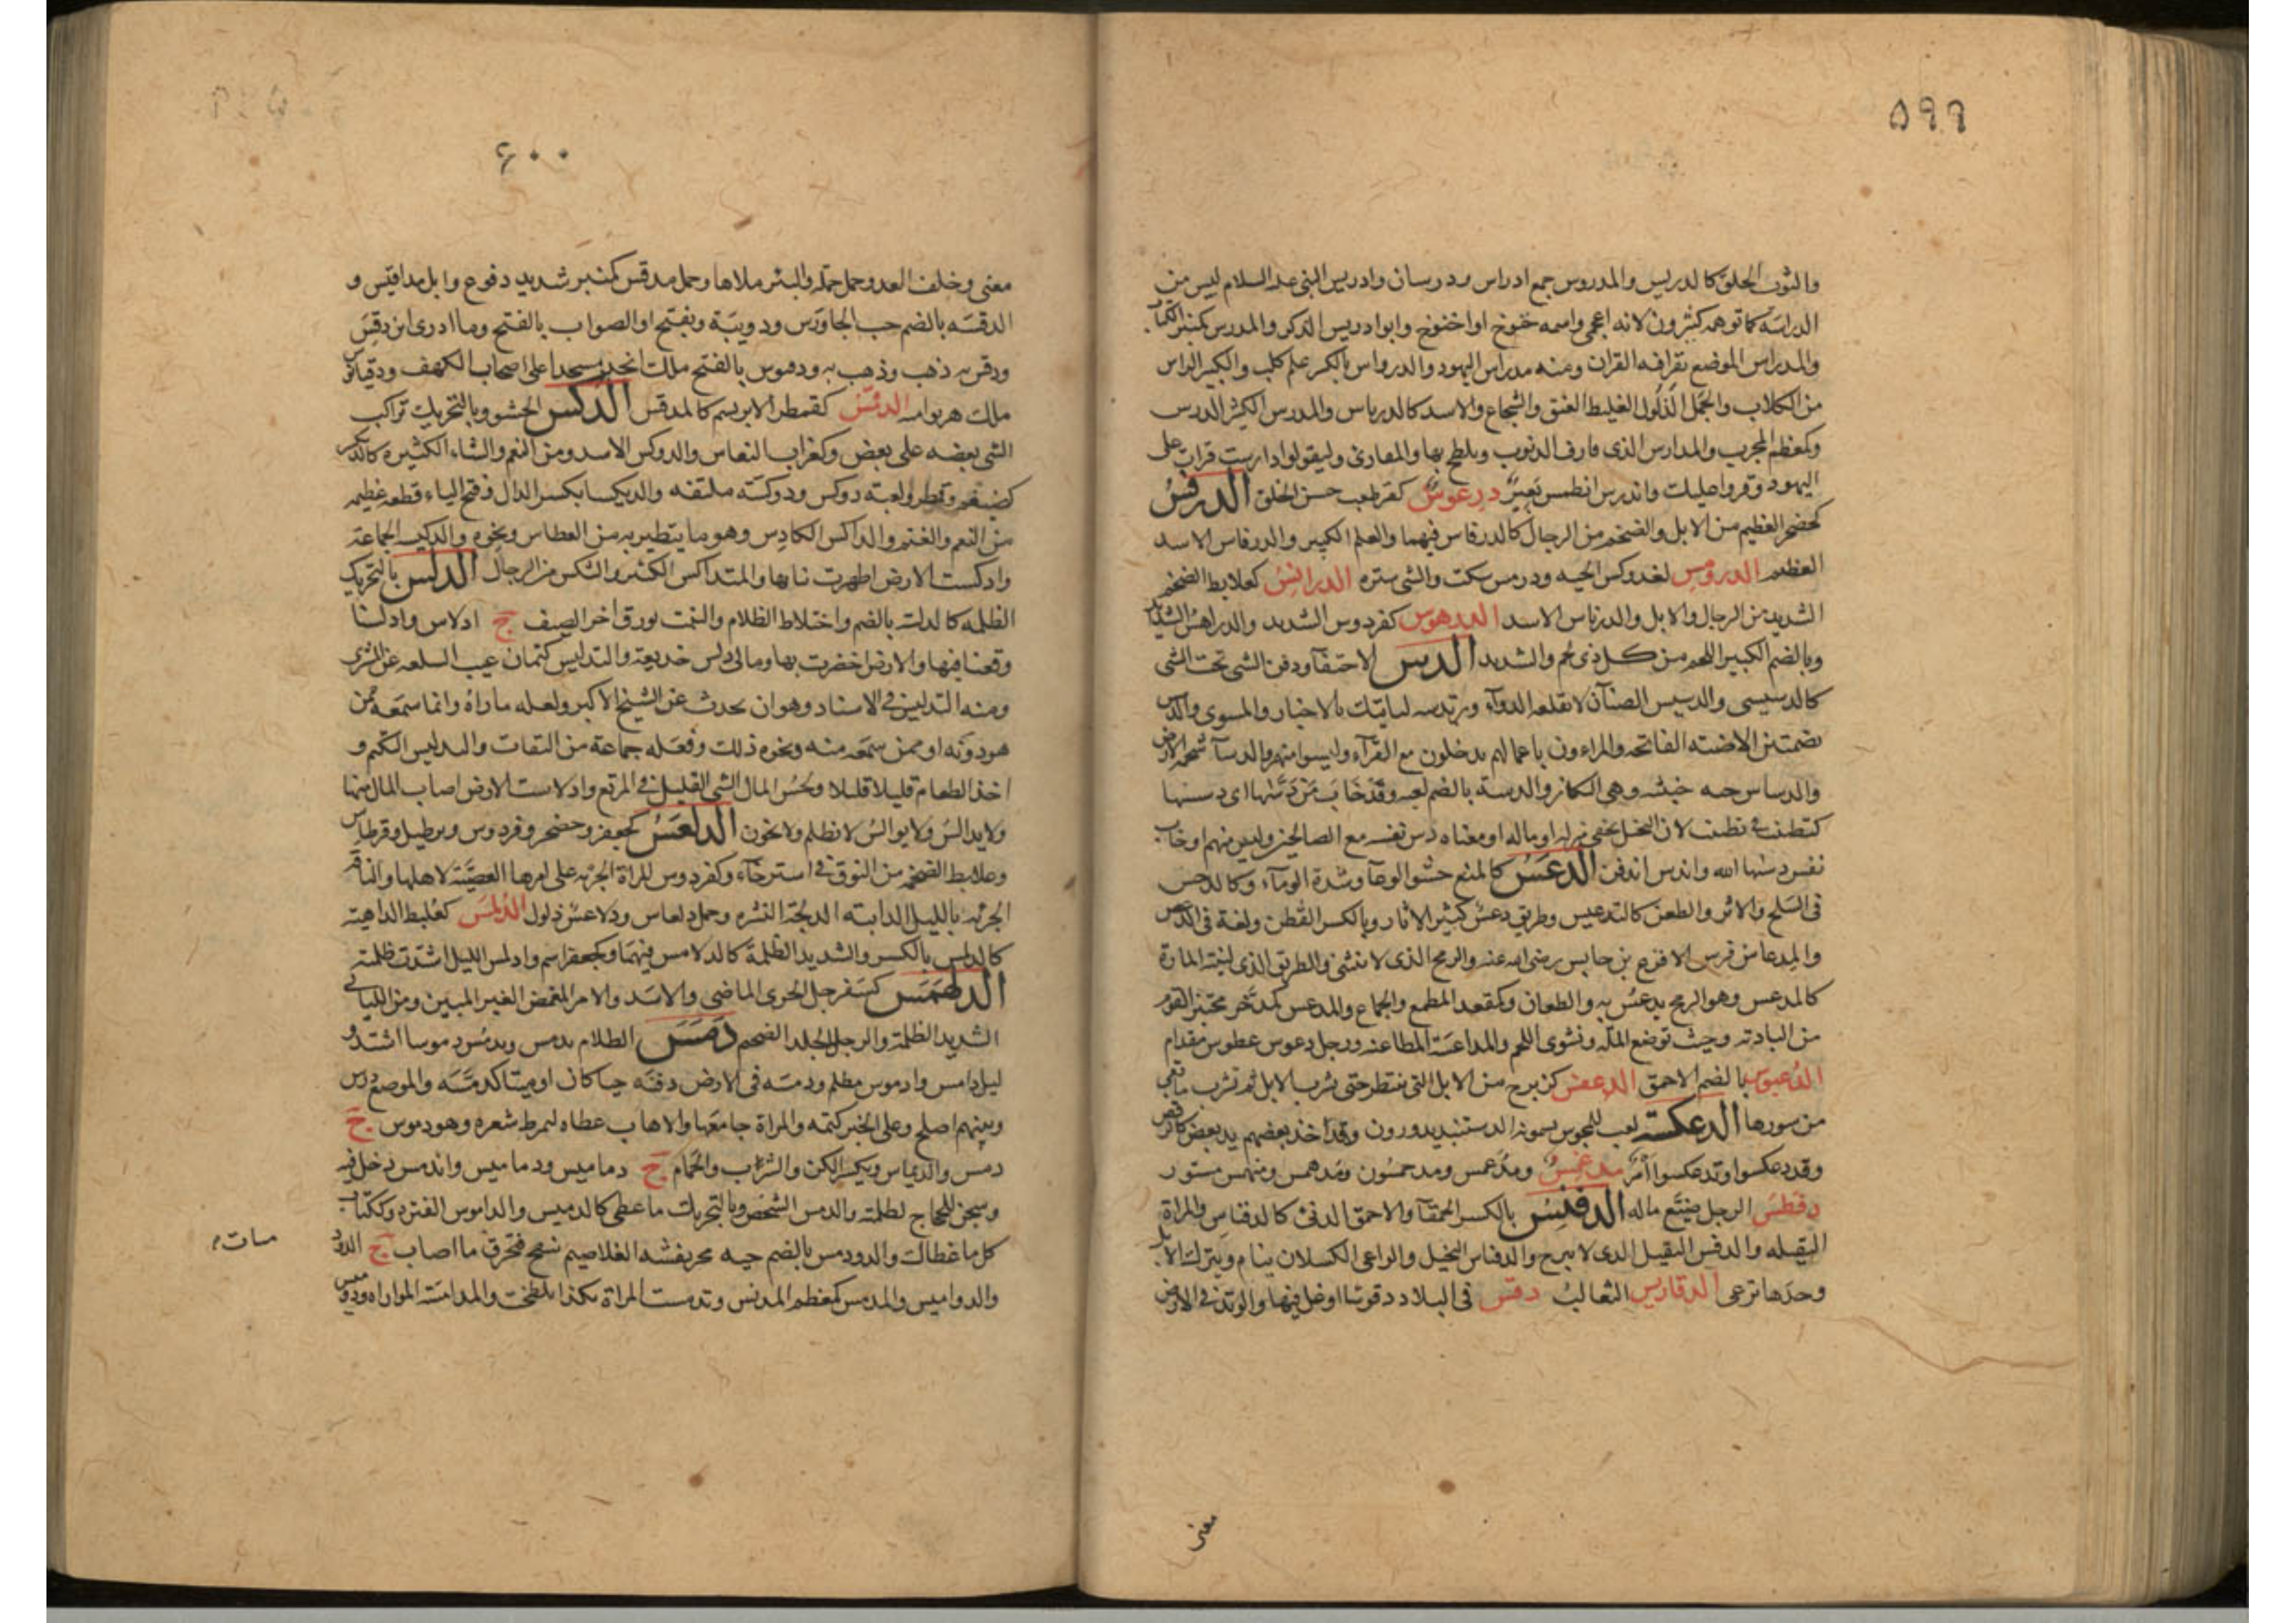 ٥٩٩
والثوب الخلق كالدريس والمدروس جمع ادراس ودرسان وادريس النبى عليه السلام ليس من
الدراسة كما توهمه كثيرون لانه اعجمى واسمه خنوخ او اخنوخ وابو ادريس الذكر والمدرس كمنبر الكتاب
والمدراس الموضع يقرا فيه القران ومنه مدراس اليهود والدرواس بالكسر علم كلب والكبير الراس
من الكلاب والجمل الذلول الغليط العنق والشجاع والاسد كالدرياس والمدرس الكثير الدرس
وكمعظم المجرب والمدارس الذى قارف الذنوب وتلطخ بها والمقارئ وليقولوا دارست قرات على
اليهود وقروا عليك واندرس انطمس بعير درعوس كقرطعب حسن الخلق الدرفس
كحضجر العظيم من الابل والضخم من الرجال كالدرفاس فيهما والعلم الكبير والدرفاس الاسد
العظيم الدرومس لغدوكس الحيه ودرمس سكت والشى ستره الدرانس كعلابط الضخم
الشديد من الرجال والابل والدرناس الاسد الدرهوس كفردوس الشديد والدراهس الشدايد
وبالضم الكبير اللحم من كل ذى لحم والشديد الدس الاخفا ودفن الشى تحت الشى
كالدسيسى والدسيس الصنان لا تقلعه الدواء ومن تدسه لياتيك بالاخبار والمسوى والدس
الاصنه الفاتحه والمراءون باعمالهم يدخلون مع القراء وليسوا منهم والدسا شحمة الارض
والدساس حيه خبيثه وهى النكاز والدسة بالضم لعبه وقد خاب من دسها اى دسسها
كتظنيت فى تظننت لان البخيل يخفى منزله وماله او معناه دس نفسه مع الصالحين وليس منهم او خاب
نفس دسها الله واندس اندفن الدعس كالمنع حشو الوعا وشدة الوطاء وكالدحس
فى السلخ والاثر والطعن كالتدعيس وطريق دعس كثير الاثار وبالكسر القطن ولغة فى الدعص
والمدعاس فرس الاقرع بن حابس رضى الله عنه والرمح الذى لا ينثنى والطريق الذى لينته المارة
كالمدعس وهو الرمح يدعس به والطعان وكمقعد المطمع والجماع والمدعس كمدخر مختبز القوم
من البادية وحيث توضع الملة ونشوى اللحم والمداعسة المطاعنه ورجل دعوس عطوس مقدام
الدعبوس بالضم الاحمق الدعفس كزبرج من الابل التى تنتظر حتى تشرب الابل ثم تشرب ما بقى
من سورها الدعكسة لعب للمجوس يسمونه الدستبند يدورون وقد اخذ بعضهم يد بعض كالرقص
وقد دعكسوا وتدعكسوا امر مدغمس ومدعمس ومدحمس ومدهمس ومنهمس مستور
دفطس الرجل ضيع ماله الدفنس بالكسر الحمقآ والاحمق الدنى كالدفناس والمراة
الثقيله والدفنس الثقيل الذى لا يبرح والدفناس البخيل والراعى الكسلان ينام ويترك الابل
وحدها ترعى الدقاريس الثعالب دقس فى البلاد دقوسا اوغل فيها والوتد فى الارض
معنى
٦٠٠
معنى وخلف العدو حمل حملة والبئر ملاها وجمل مدقس كمنبر شديد دفوع وابل مداقيس و
الدقسه بالضم حب الجاورس ودويبة وبفتح او الصواب بالفتح وما ادرى اين دقس
ودقس به ذهب وذهب به ودقيوس بالفتح ملك اتخذ مسجدا على اصحاب الكهف ودقيانوس
ملك هربوا منه الدقمس كقمطر الابريسم كالمدقس الدكس الحشو وبالتحريك تراكب
الشى بعضه على بعض وكغراب النعاس والدوكس الاسد ومن النعم والشاء الكثيره كالديكس
كضيغم وقمطر ولعبة دوكس ودوكسة ملتفه والديكسا بكسر الدال وفتح الياء قطعة عظيمه
من النعم والغنم والداكس الكادس وهو ما يتطير به من العطاس ونحوه والدكيس الجماعة
وادكست الارض اظهرت نباتها والمتداكس الكثير والشكس من الرجال الدلس بالتحريك
الظلمه كالدلسه بالضم واختلاط الظلام والنبت يورق اخر الصيف ج ادلاس وادلسنا
وقعنا فيها والارض اخضرت بها ومالى دلس خديعة والتدليس كتمان عيب السلعه عن المشترى
ومنه التدليس فى الاسناد وهو ان يحدث عن الشيخ الاكبر ولعله ماراه وانما سمعه ممن
هو دونه او ممن سمعه منه ونحو ذلك وفعله جماعة من الثقات والتدليس التكتم و
اخذ الطعام قليلا قليلا ولحس المال الشى القليل فى المرتع وادلاست الارض اصاب المال منها
ولا يدالس ولا يوالس لا يظلم ولا يخون الدلعس كجعفر وحضجر وفردوس وبرطيل وقرطاس
وعلابط الضخمه من النوق فى استرخآء وكفردوس للمراة الجرئه على امرها العصية لاهلها والناقة
الجرئه بالليل الدابته الدلجة النشزه وجمل دلعاس ودلاعس ذلول الدلمس كعلبط الداهية
كالدلمس بالكسر والشديد الظلمة كالدلامس فيهما وكجعفر اسم وادلمس الليل اشتدت ظلمته
الدلهمس كسفرجل الجرى الماضى والاسد والامر المغمض الغير المبين ومن الليالى
الشديد الظلمة والرجل الجلد الضخم دمس الظلام يدمس ويدمس دموسا اشتد و
ليل دامس وادموس مظلم ودمسه فى الارض دفنه حيا كان او ميتا كدمسه والموضع درس
وبينهم اصلح وعلى الخبر كتمه والمراة جامعها والاهاب غطاه ليمرط شعره وهو دموس ج
دمس والديماس ويكسر الكن والسرب والحمام ج دماميس ودماميس واندمس دخل فيه
وسجن للحجاج لظلمته والدمس الشخص وبالتحريك ما غطى كالدميس والداموس القتره وككتاب
كل ما غطاك والدودمس بالضم حيه محرنفشه الغلاصيم تنفخ فتحرق ما اصاب ج الدود
مسات
والدواميس والمدمس كمعظم المدنس وتدمست المراة بكذا تلطخت والمدامسة المواراه ودوميس